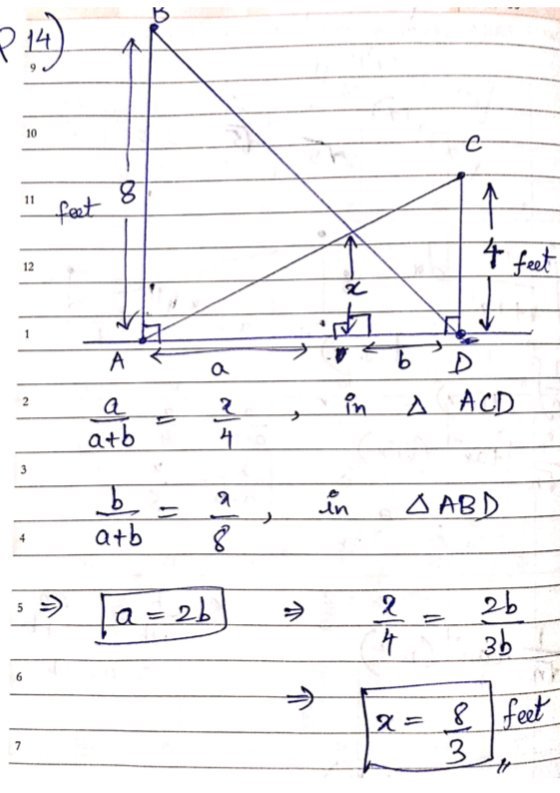 P 14)
B
9
10
C
11
feet 8
4 feet
12
x
1
A a b D
2
a/(a+b) = x/4 , in △ ACD
3
b/(a+b) = x/8 , in △ ABD
4
5 ⇒ a = 2b ⇒ x/4 = 2b/3b
6
⇒ x = 8/3 feet
7